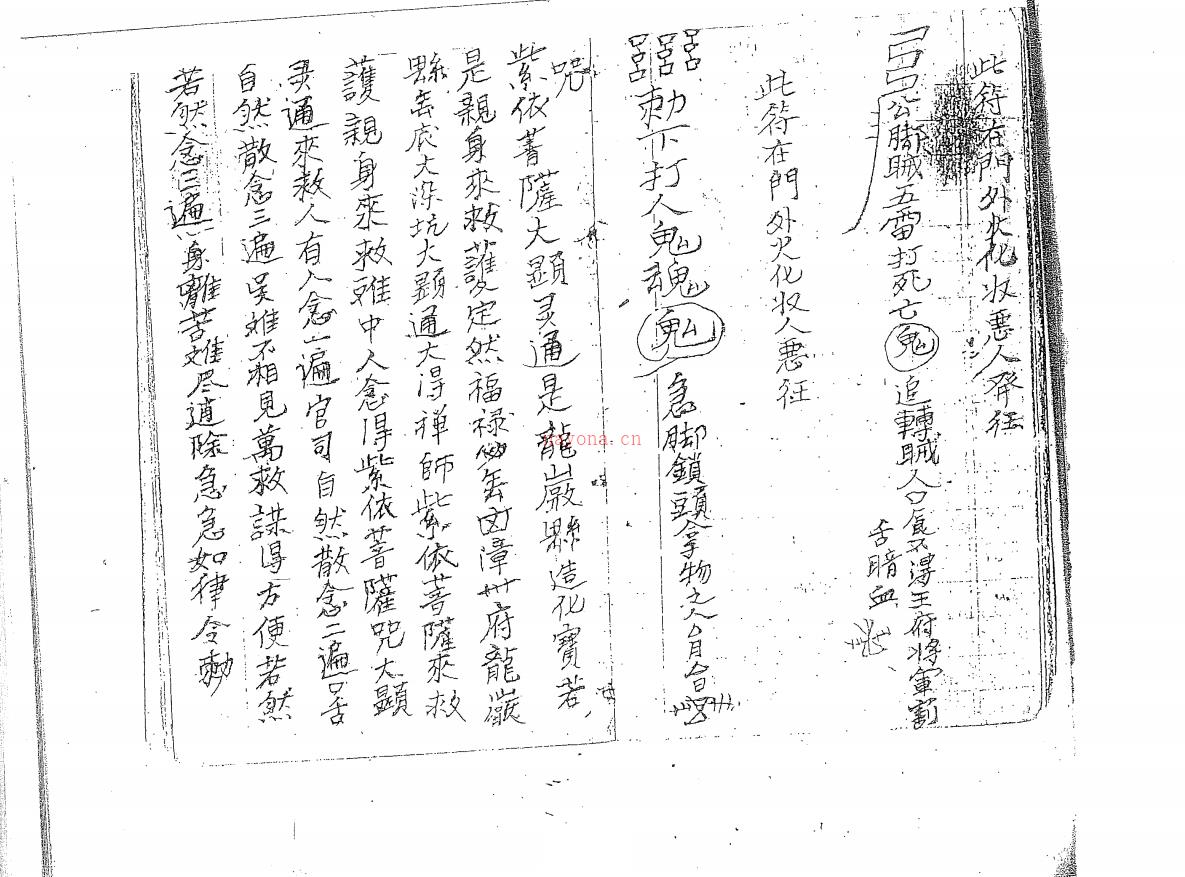 此符在門外火化收惡人發狂
公脚賊五雷打死亡鬼追轉賊人口食不得王府將軍割
舌暗血
此符在門外火化收人惡狂
勅下打人鬼魂鬼急脚鎖頭拿物之人
咒
紫依菩薩大顕灵通是龍巖縣造化寶若
是親身來救護定然福禄漳州府龍巖
縣大深坑大顕通大得禅師紫依菩薩來救
護親身來救难中人念得紫依菩薩咒大顕
灵通來救人有人念一遍官司自然散念二遍口舌
自然散念三遍吴难不相見萬救謀得方便若然
若然念三遍身離苦难尽逍除急急如律令勅
nayona.cn